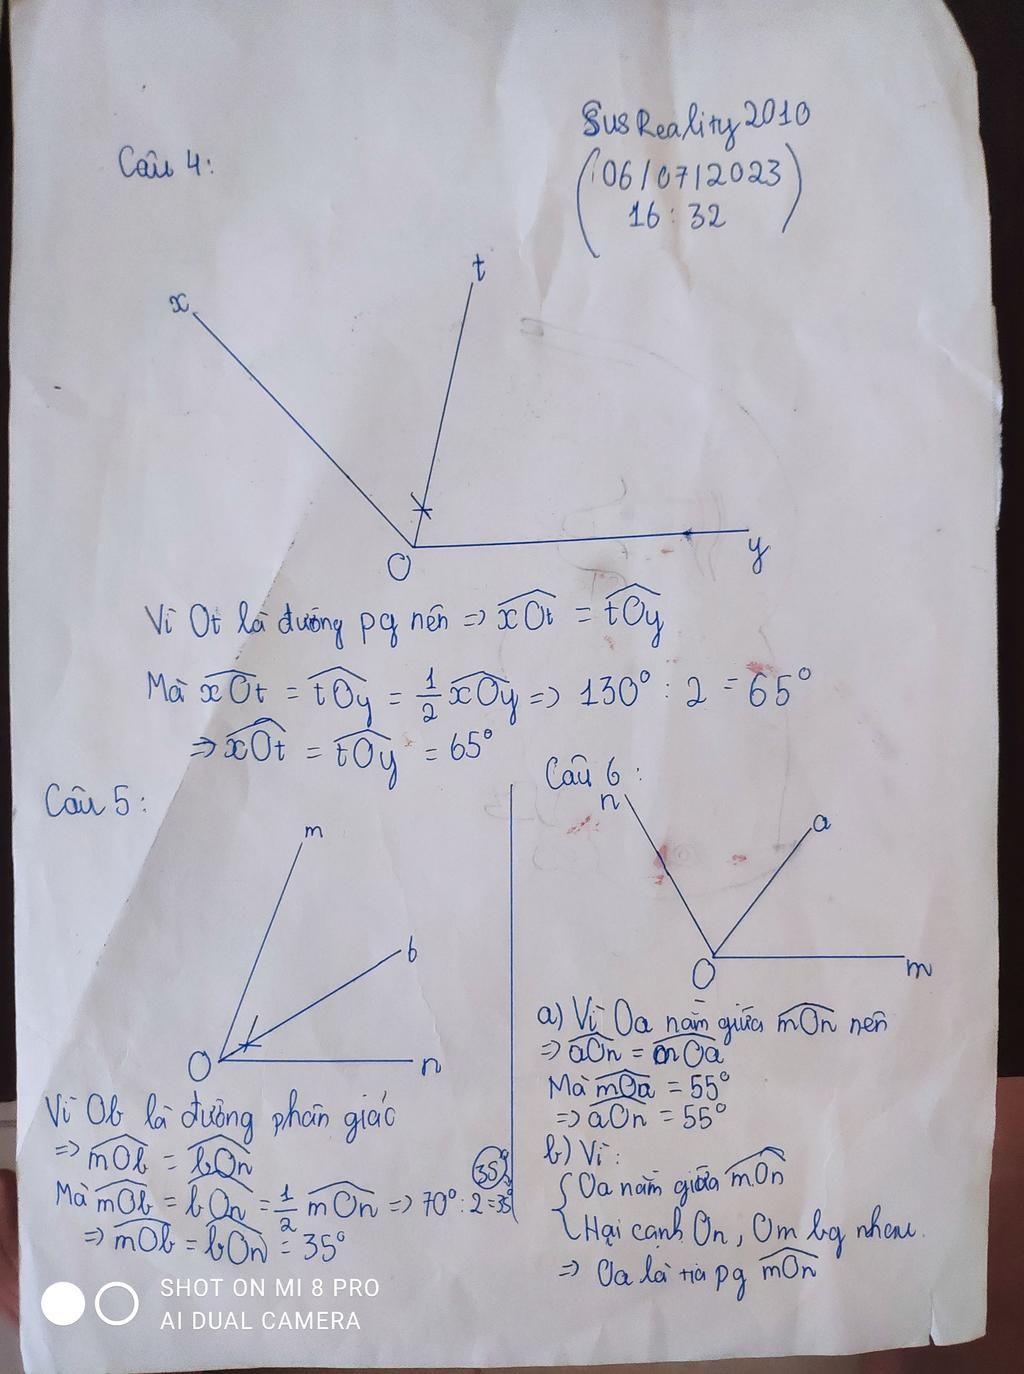 SusReality2010
(06/07/2023
16:32)
Câu 4:
x
t
O
y
Vì Ot là đường pg nên => xOt = tOy
Mà xOt = tOy = 1/2 xOy => 130° : 2 = 65°
=> xOt = tOy = 65°
Câu 5:
m
b
O
n
Vì Ob là đường phân giác
=> mOb = bOn
Mà mOb = bOn = 1/2 mOn => 70° : 2 = 35°
35°
=> mOb = bOn = 35°
Câu 6:
n
a
O
m
a) Vì Oa nằm giữa mOn nên
=> aOn = mOa
Mà mOa = 55°
=> aOn = 55°
b) Vì:
{ Oa nằm giữa mOn
Hai cạnh On, Om bg nhau.
=> Oa là tia pg mOn
SHOT ON MI 8 PRO
AI DUAL CAMERA